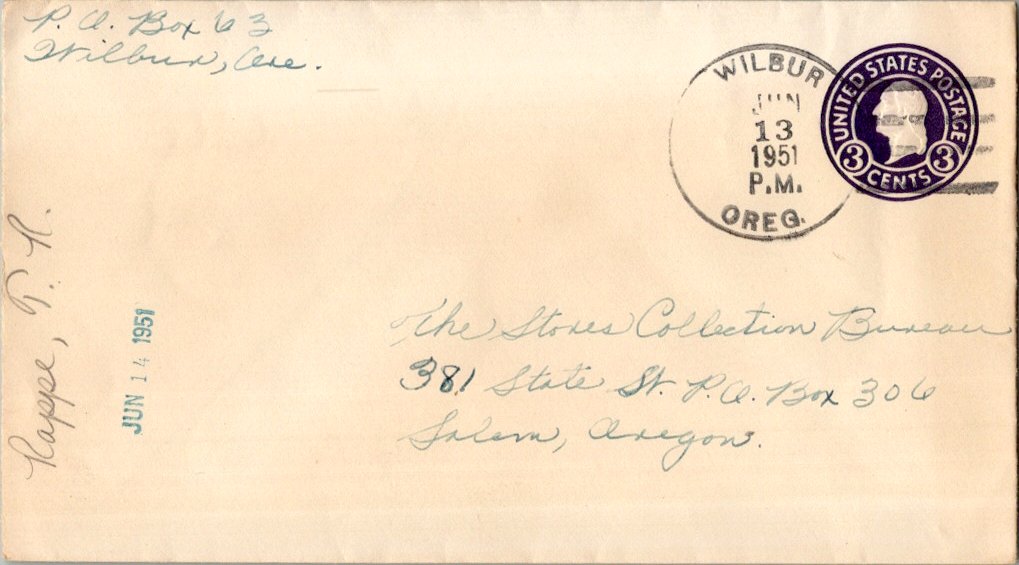 P. O. Box 63
Wilbur, Ore.
WILBUR
JUN
13
1951
P.M.
OREG.
UNITED STATES POSTAGE
3 CENTS 3
Rappe, T. R.
JUN 14 1951
The Stores Collection Bureau
381 State St. P.O. Box 306
Salem, Oregon.